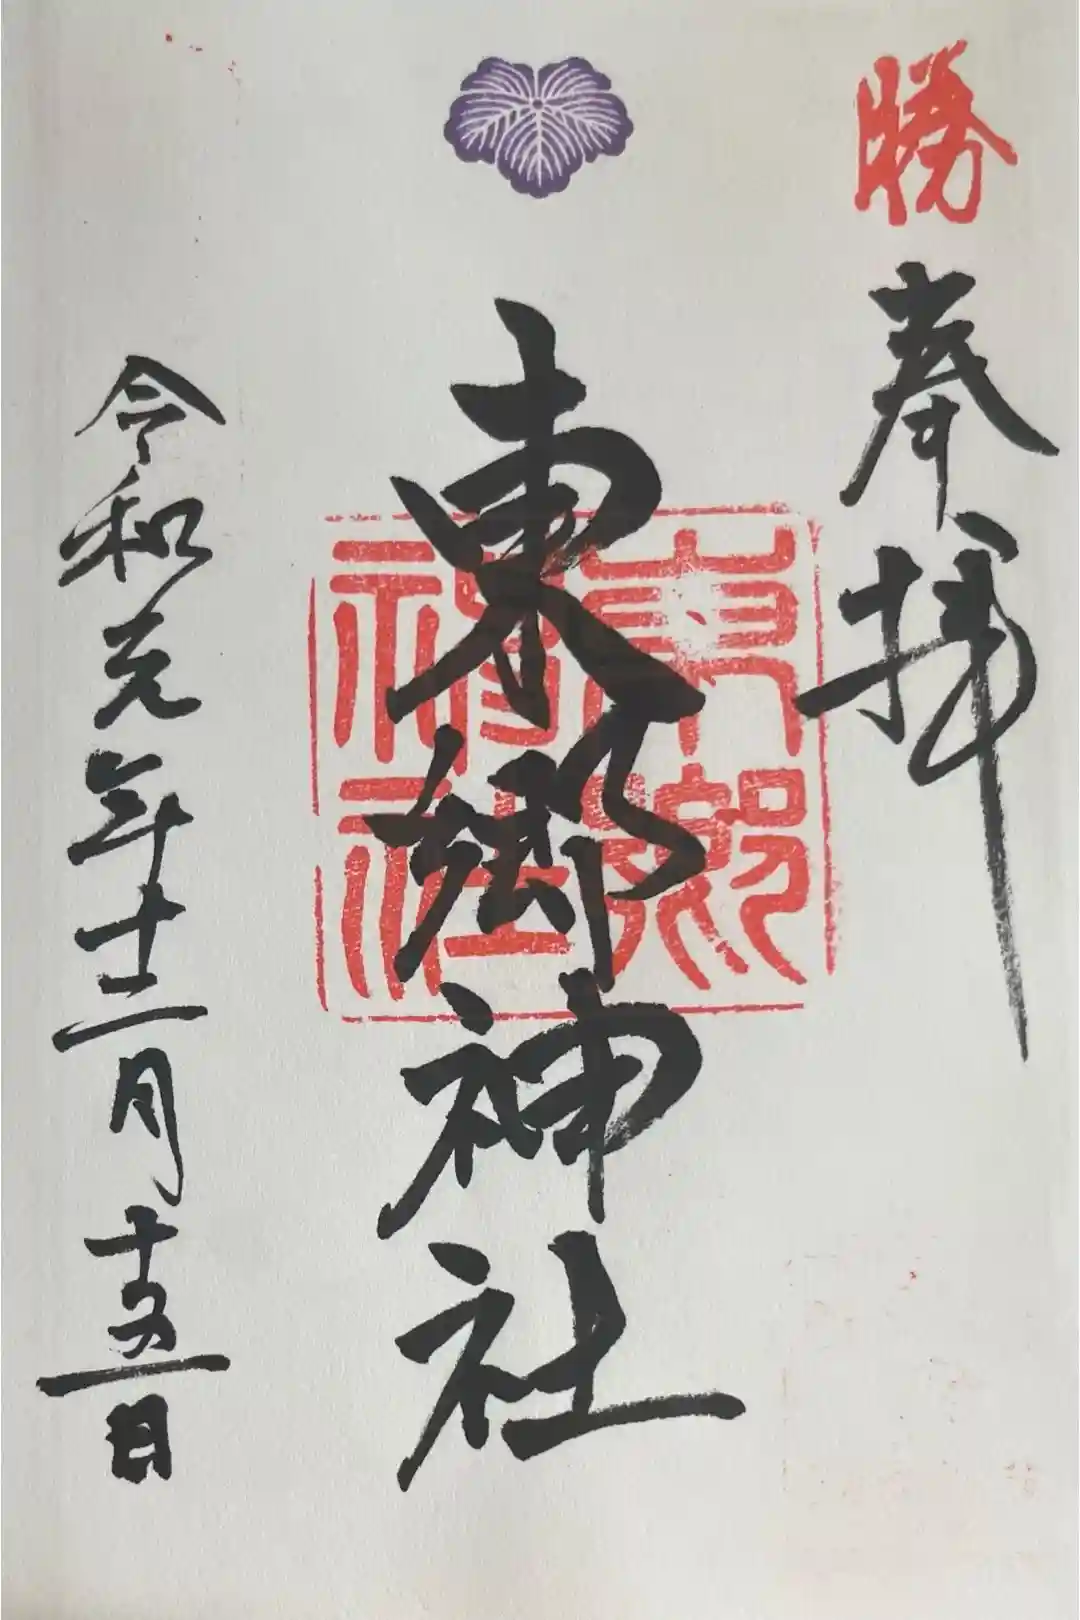 勝
奉拝
東郷神社
東郷
神社
令和元年十二月十五日